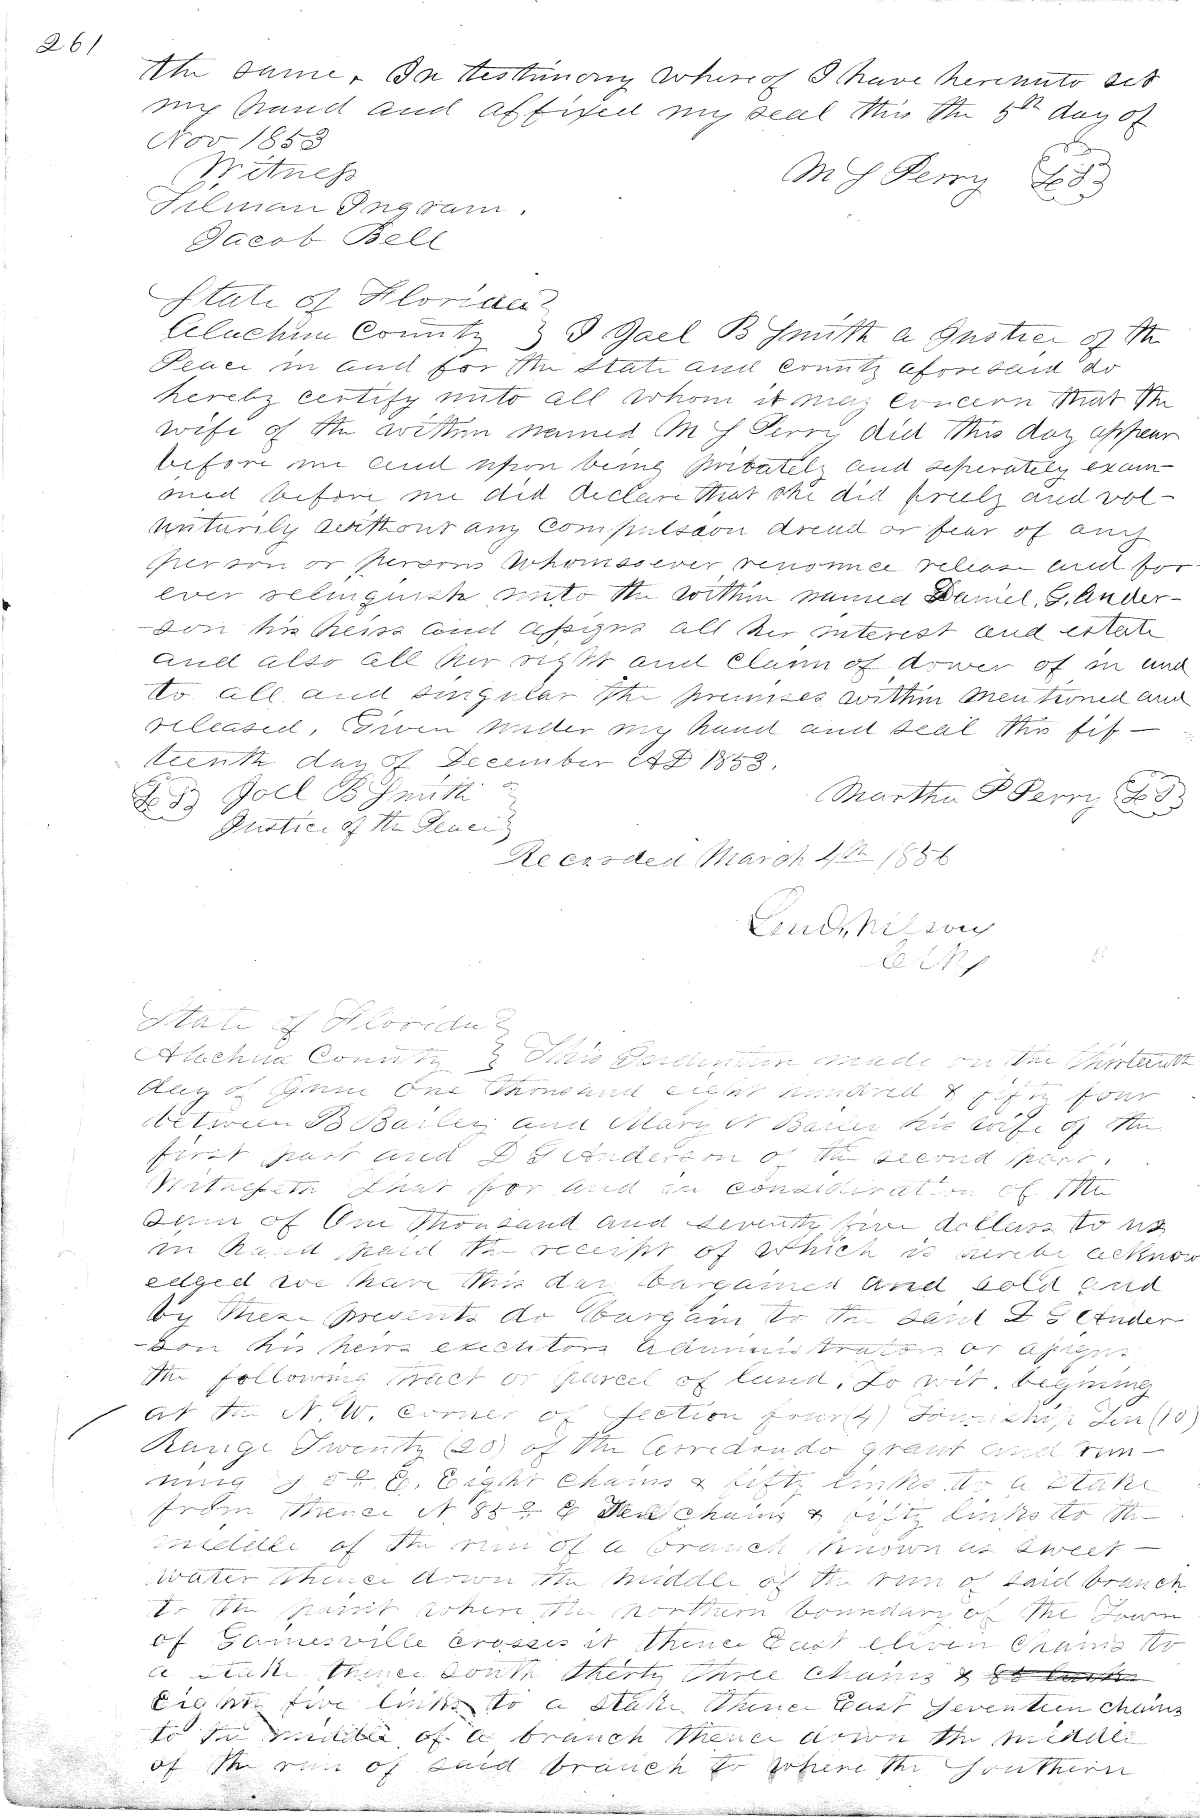 261
the same. In testimony whereof I have hereunto set
my hand and affixed my seal this the 5th day of
Nov 1853
Witness
M S Perry LS
Tilman Ingram.
Jacob Bell
State of Florida }
Alachua County } I Joel B Smith a Justice of the
Peace in and for the State and County aforesaid do
hereby certify unto all whom it may concern that the
wife of the within named M S Perry did this day appear
before me and upon being privately and seperately exam-
ined before me did declare that she did freely and vol-
unturily without any compulsion dread or fear of any
person or persons whomsoever renounce release and for-
ever relinguish unto the within named Daniel. G. Ander-
-son his heirs and assigns all her interest and estate
and also all her right and claim of dower of in and
to all and singular the premises within mentioned and
released. Given under my hand and seal this fif-
teenth day of December AD 1853.
LS Joel B Smith }
Martha P Perry LS
Justice of the Peace }
Recorded March 4th 1856
Wilson
Clk
State of Florida }
Alachua County } This Indenture made on the thirteenth
day of June One thousand eight hundred & fifty four
between B Bailey and Mary N Bailey his wife of the
first part and D G Anderson of the second part.
Witnesseth That for and in consideration of the
sum of One thousand and seventy five dollars to us
in hand paid the receipt of which is hereby acknow
edged we have this day bargained and sold and
by these presents do bargain to the said D G Ander
-son his heirs executors administrators or assigns
the following tract or parcel of land. To wit. begining
at the N. W. corner of Section four (4) Township Ten (10)
Range Twenty (20) of the Arredondo grant and run-
ning S 5° E. Eight chains & fifty links to a stake
from thence N 85° E Ten chains & fifty links to the
middle of the run of a branch known as sweet-
water thence down the middle of the run of said branch
to the point where the northern boundary of the Town
of Gainesville crosses it thence East eleven chains to
a stake thence South thirty three chains &
eighty five links to a stake thence East Seventeen chains
to the middle of a branch thence down the middle
of the run of said branch to where the Southern